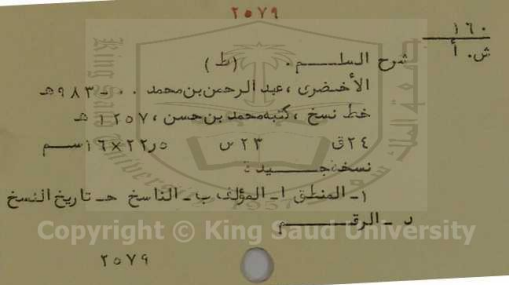 ٢٥٧٩
١٦٠
ش. أ
شرح السلم. (ط)
الأخضرى، عبد الرحمن بن محمد ٠٠-٩٨٣هـ
خط نسخ، كتبه محمد بن حسن، ١٢٥٧هـ
٢٤ق ٢٣س ٥ر٢٢×١٦سم
نسخة جيدة
١- المنطق أ- المؤلف ب- الناسخ ج- تاريخ النسخ
د- الرقم
Copyright © King Saud University
٢٥٧٩